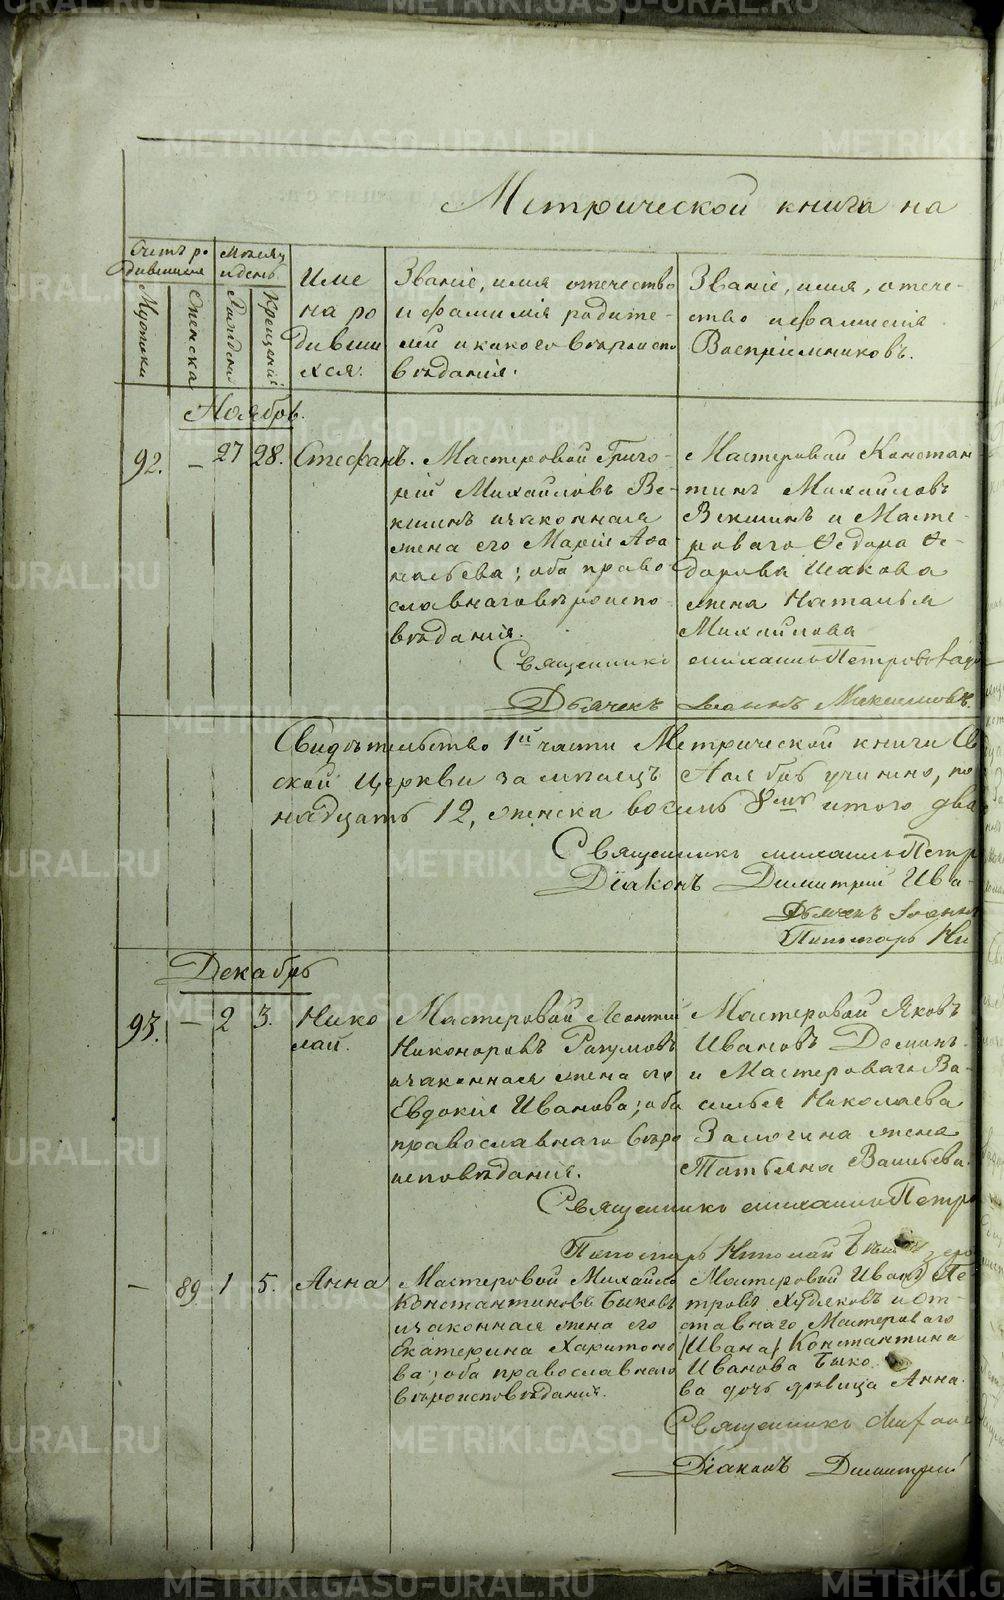 Метрической книга на
Счетъ ро
дившихся
Месяцъ
и день
Мужска
Женска
Рожденія
Крещенія
Име
на ро
дивши
хся.
Званіе, имя отечество
и фамилія родите
лей и какого вѣроиспо
вѣданія.
Званіе, имя, отече-
ство и фамилія
Воспріемниковъ.
Ноябрь.
92. – 27 28. Стефанъ.
Мастеровой Григо-
рій Михайловъ Ве-
кшинъ и законная
жена его Марія Афа
насьева; оба право
славнаго вѣроиспо
вѣданія.
Мастеровой Констан
тинъ Михайловъ
Векшинъ и Масте-
роваго Ѳедора Ѳе-
дорова Исакова
жена Наталья
Михайлова
Священникъ Михаилъ Петровъ
Дьячекъ Іоаннъ Максимовъ.
Свидѣтельство 1й части Метрической книги
ской Церкви за мѣсяцъ Ноябрь учинено, по
надцать 12, женска восемь 8мь итого два
Священникъ Михаилъ Петр
Діаконъ Димитрій Ива-
Дьячекъ Іоанн
Пономарь Ни
Декабрь
93. – 2 3. Нико
лай.
Мастеровой Леонтий
Никоноровъ Разумовъ
и законная жена его
Евдокія Иванова; оба
православнаго вѣро
исповѣданія.
Мастеровой Яковъ
Ивановъ Деминъ
и Мастероваго Ва-
силья Николаева
Замогина жена
Татьяна Васильева.
Священникъ Михаилъ Петро
Пономарь Николай
– 89 1 5. Анна
Мастеровой Михайло
Константиновъ Быковъ
и законная жена его
Екатерина Харитоно
ва; оба православнаго
вѣроисповѣданія.
Мастеровой Иванъ Пе-
тровъ Худяковъ и От-
ставнаго Мастероваго
/Ивана/ Константина
Иванова Быко
ва дочь дѣвица Анна.
Священникъ Михаил
Діаконъ Димитрій
METRIKI.GASO-URAL.RU